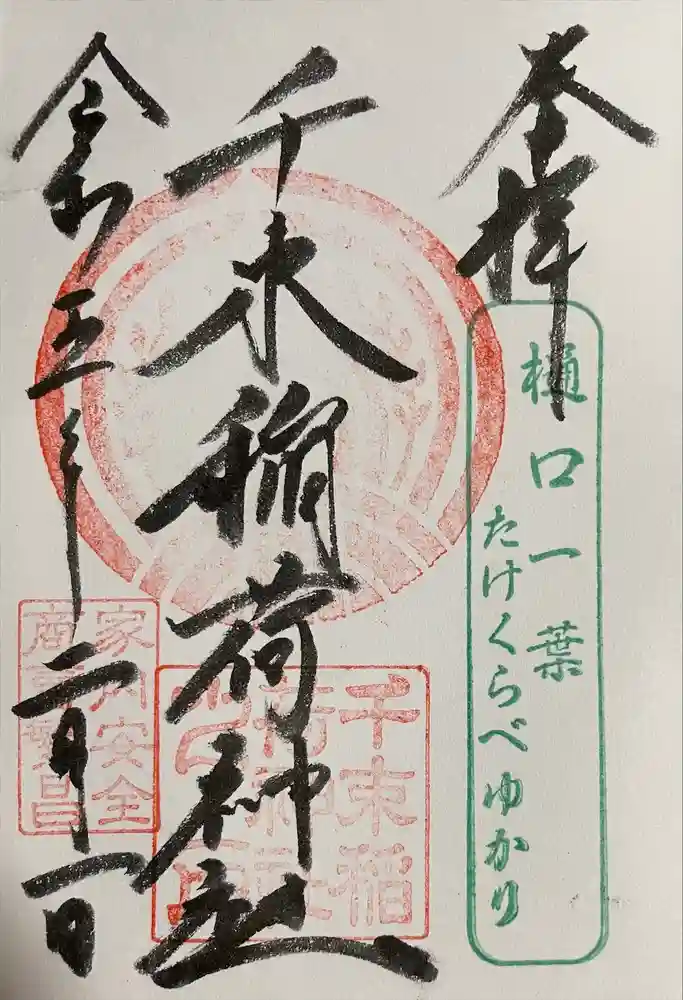 奉拝
樋口一葉
たけくらべゆかり
千束稲荷神社
千束稲
荷神社
令和五年二月一日
家内安全
商売繁昌